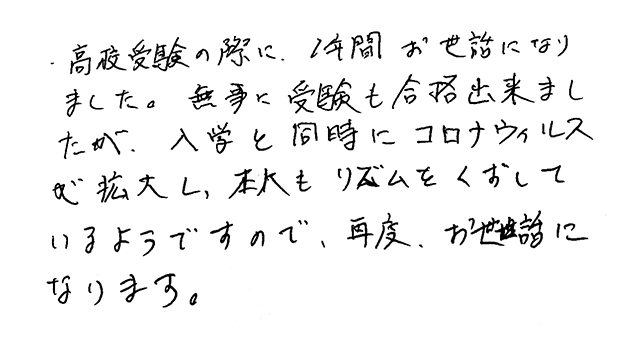 ・高校受験の際に、1年間お世話になり
ました。無事に受験も合格出来まし
たが、入学と同時にコロナウィルス
が拡大し、本人もリズムをくずして
いるようですので、再度、お世話に
なります。